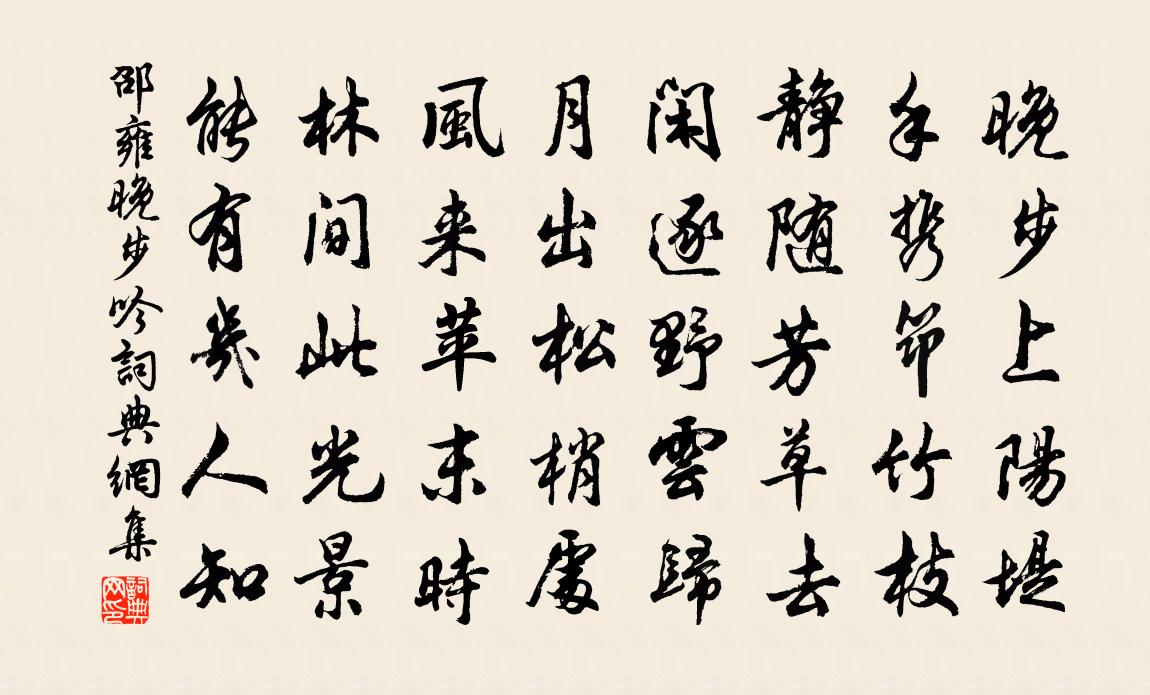 晚步上陽堤
手携筇竹枝
静随芳草去
閑逐野雲歸
月出松梢處
風来苹末時
林間此光景
能有幾人知
邵雍晚步吟詞典網集
詞典网印